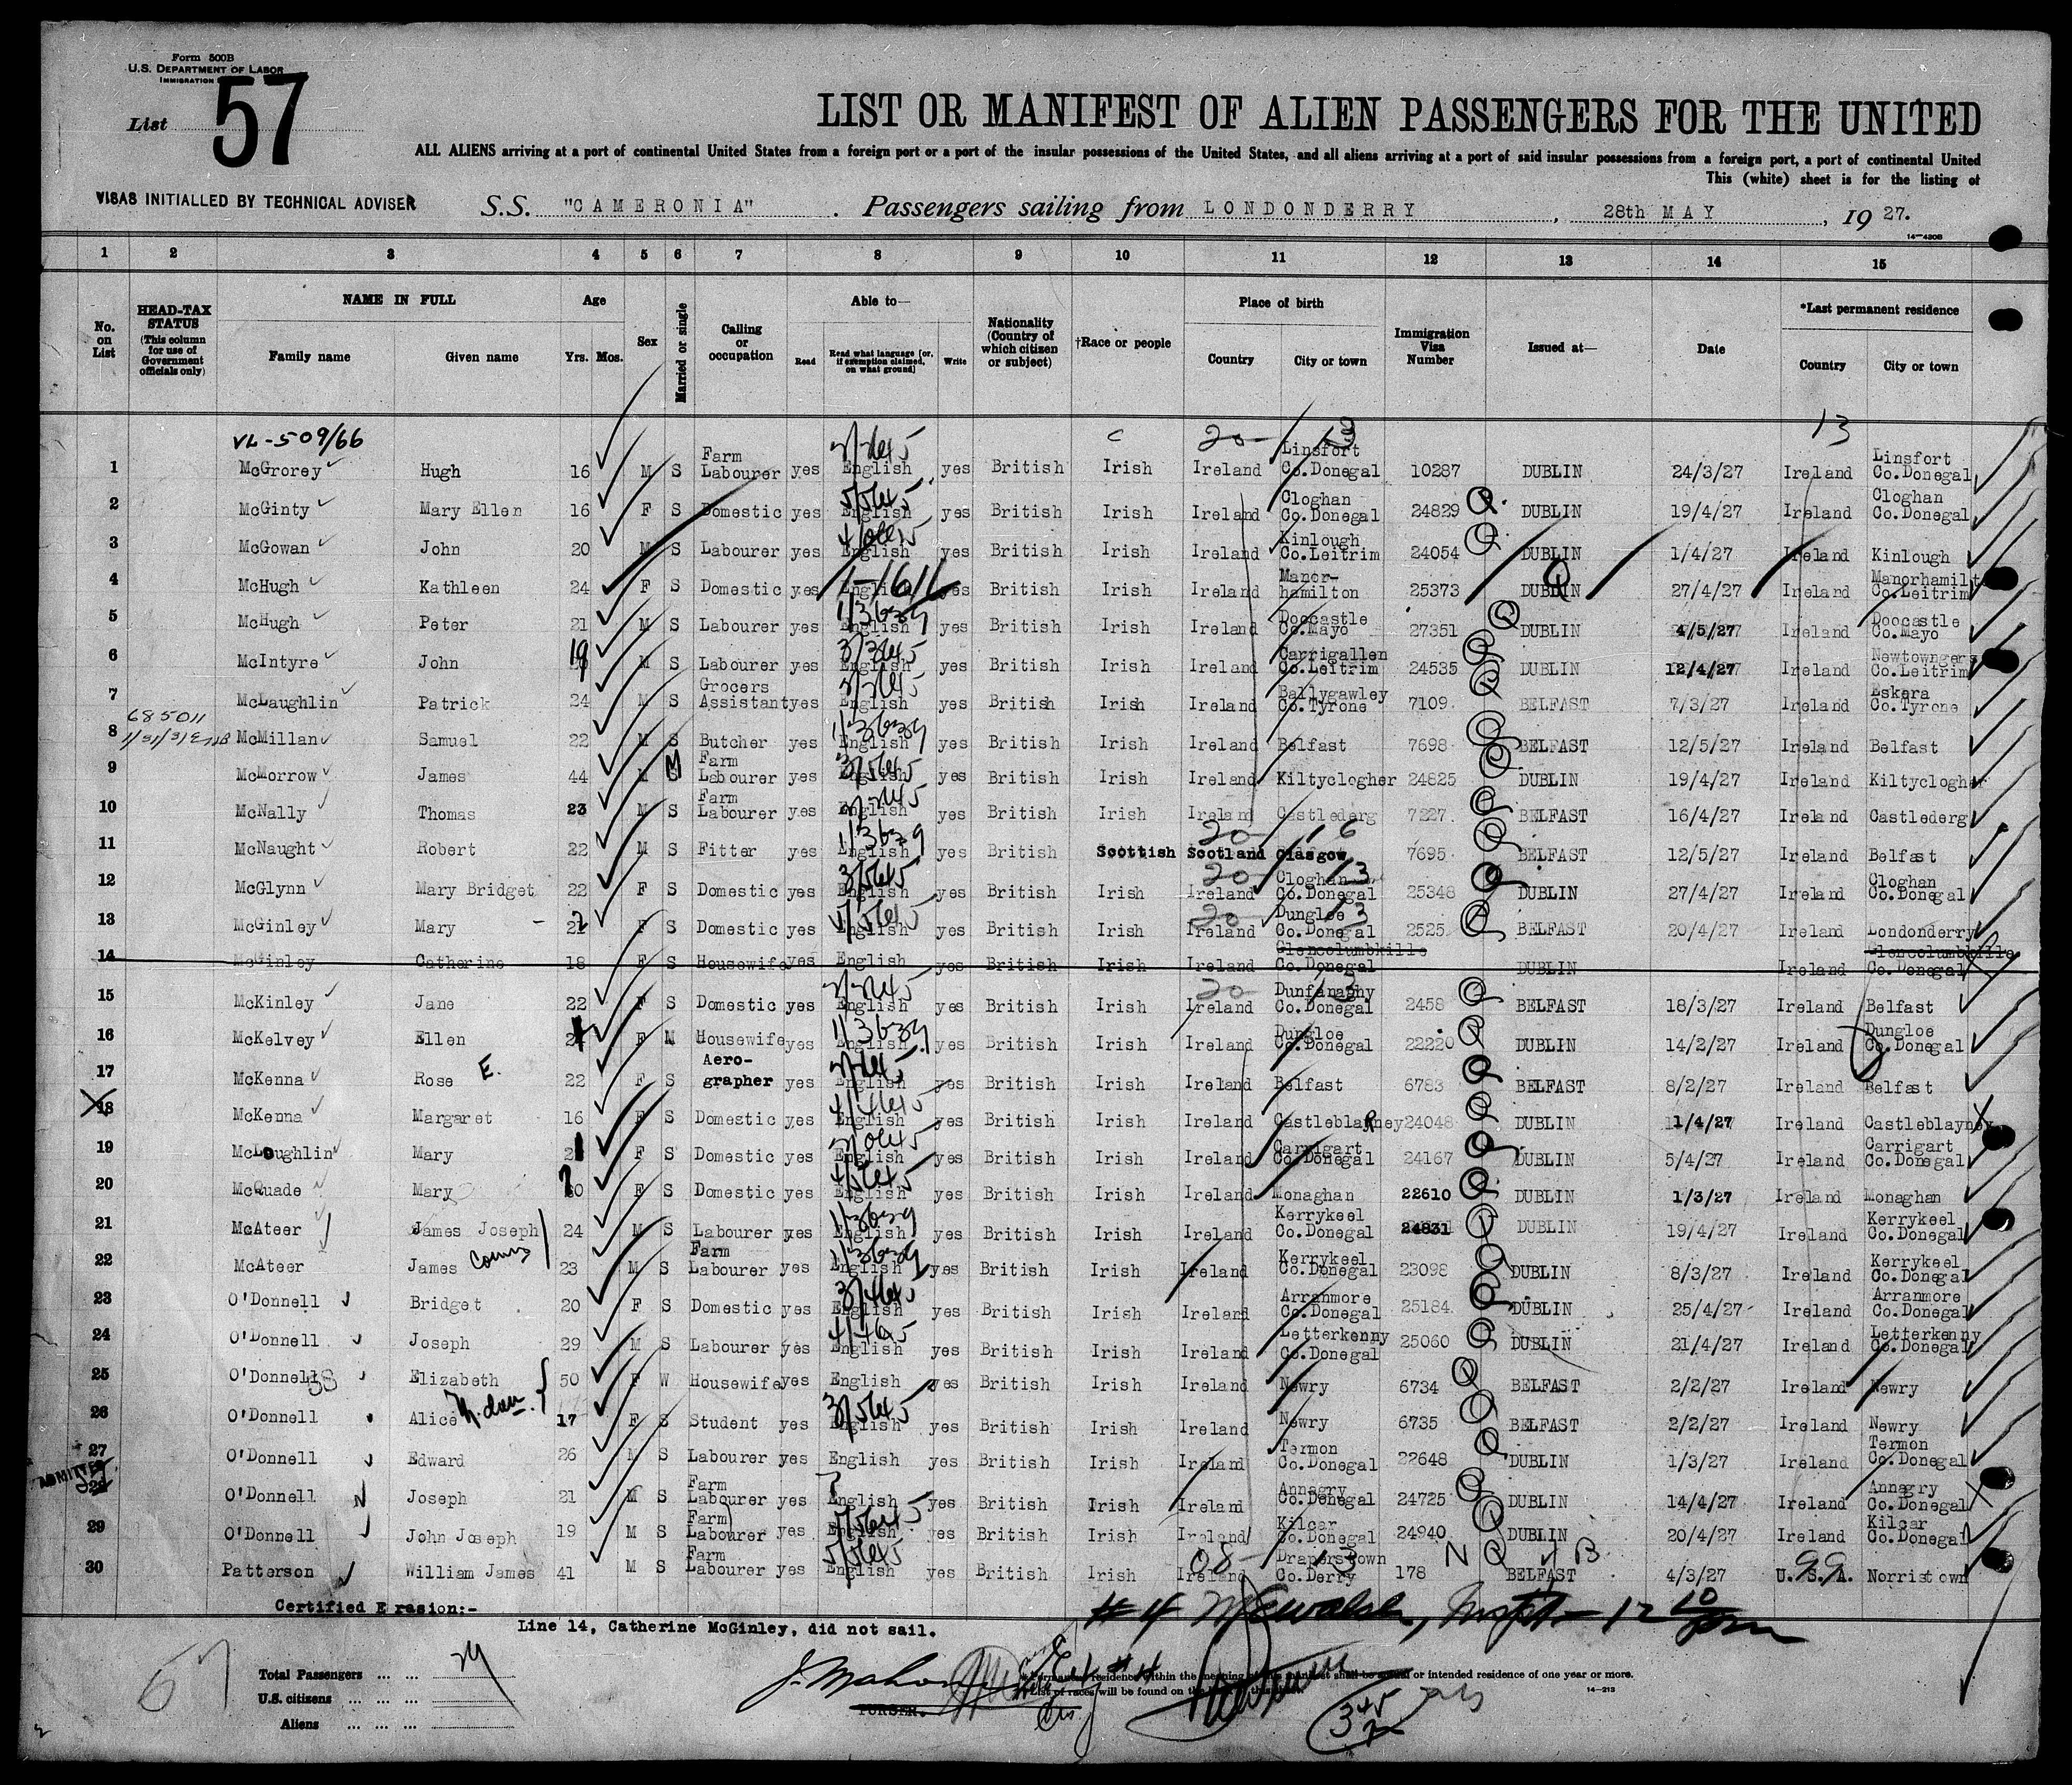 Form 500B
U.S. DEPARTMENT OF LABOR
IMMIGRATION
List 57
LIST OR MANIFEST OF ALIEN PASSENGERS FOR THE UNITED
ALL ALIENS arriving at a port of continental United States from a foreign port or a port of the insular possessions of the United States, and all aliens arriving at a port of said insular possessions from a foreign port, a port of continental United
This (white) sheet is for the listing of
VISAS INITIALLED BY TECHNICAL ADVISER
S.S. "CAMERONIA" . Passengers sailing from LONDONDERRY, 28th MAY, 1927.
14-430B
1 2 3 4 5 6 7 8 9 10 11 12 13 14 15
No. on List
HEAD-TAX STATUS (This column for use of Government officials only)
NAME IN FULL
Family name Given name
Age
Yrs. Mos.
Sex
Married or single
Calling or occupation
Able to—
Read Read what language [or, if exemption claimed, on what ground] Write
Nationality (Country of which citizen or subject)
†Race or people
Place of birth
Country City or town
Immigration Visa Number
Issued at—
Date
*Last permanent residence
Country City or town
VL-509/66
20- 13 13
1 McGrorey Hugh 16 M S Farm Labourer yes English yes British Irish Ireland Linsfort Co.Donegal 10287 DUBLIN 24/3/27 Ireland Linsfort Co.Donegal
2 McGinty Mary Ellen 16 F S Domestic yes English yes British Irish Ireland Cloghan Co.Donegal 24829 DUBLIN 19/4/27 Ireland Cloghan Co.Donegal
3 McGowan John 20 M S Labourer yes English yes British Irish Ireland Kinlough Co.Leitrim 24054 DUBLIN 1/4/27 Ireland Kinlough
4 McHugh Kathleen 24 F S Domestic yes English yes British Irish Ireland Manor-hamilton 25373 DUBLIN 27/4/27 Ireland Manorhamilt Co.Leitrim
5 McHugh Peter 21 M S Labourer yes English yes British Irish Ireland Doocastle Co.Mayo 27351 DUBLIN 4/5/27 Ireland Doocastle Co.Mayo
6 McIntyre John 19 M S Labourer yes English yes British Irish Ireland Carrigallen Co.Leitrim 24535 DUBLIN 12/4/27 Ireland Newtowngers Co.Leitrim
7 McLaughlin Patrick 24 M S Grocers Assistant yes English yes British Irish Ireland Ballygawley Co.Tyrone 7109 BELFAST 7/3/27 Ireland Eskera Co.Tyrone
685011
8 McMillan Samuel 22 M S Butcher yes English yes British Irish Ireland Belfast 7698 BELFAST 12/5/27 Ireland Belfast
9 McMorrow James 44 M M Farm Labourer yes English yes British Irish Ireland Kiltyclogher 24825 DUBLIN 19/4/27 Ireland Kiltyclogher
10 McNally Thomas 23 M S Farm Labourer yes English yes British Irish Ireland Castlederg 7227 BELFAST 16/4/27 Ireland Castlederg
11 McNaught Robert 22 M S Fitter yes English yes British Scottish Scotland Glasgow 7695 BELFAST 12/5/27 Ireland Belfast
12 McGlynn Mary Bridget 22 F S Domestic yes English yes British Irish Ireland Cloghan Co.Donegal 25348 DUBLIN 27/4/27 Ireland Cloghan Co.Donegal
13 McGinley Mary F S Domestic yes English yes British Irish Ireland Dungloe Co.Donegal 2525 BELFAST 20/4/27 Ireland Londonderry
14 McGinley Catherine 18 F S Housewife yes English yes British Irish Ireland Glencolumbkille Co.Donegal DUBLIN Ireland Glencolumbkille Co.Donegal
15 McKinley Jane 22 F S Domestic yes English yes British Irish Ireland Dunfanaghy Co.Donegal 2458 BELFAST 18/3/27 Ireland Belfast
16 McKelvey Ellen F M Housewife yes English yes British Irish Ireland Dungloe Co.Donegal 22220 DUBLIN 14/2/27 Ireland Dungloe Co.Donegal
17 McKenna Rose E. 22 F S Aero-grapher yes English yes British Irish Ireland Belfast 6783 BELFAST 8/2/27 Ireland Belfast
18 McKenna Margaret 16 F S Domestic yes English yes British Irish Ireland CastleblaRney 24048 DUBLIN 1/4/27 Ireland Castleblayney
19 McLoughlin Mary 21 F S Domestic yes English yes British Irish Ireland Carrigart Co.Donegal 24167 DUBLIN 5/4/27 Ireland Carrigart Co.Donegal
20 McQuade Mary F S Domestic yes English yes British Irish Ireland Monaghan 22610 DUBLIN 1/3/27 Ireland Monaghan
21 McAteer James Joseph 24 M S Labourer yes English yes British Irish Ireland Kerrykeel Co.Donegal 24831 DUBLIN 19/4/27 Ireland Kerrykeel Co.Donegal
22 McAteer James 23 M S Farm Labourer yes English yes British Irish Ireland Kerrykeel Co.Donegal 23098 DUBLIN 8/3/27 Ireland Kerrykeel Co.Donegal
23 O'Donnell Bridget 20 F S Domestic yes English yes British Irish Ireland Arranmore Co.Donegal 25184 DUBLIN 25/4/27 Ireland Arranmore Co.Donegal
24 O'Donnell Joseph 29 M S Labourer yes English yes British Irish Ireland Letterkenny Co.Donegal 25060 DUBLIN 21/4/27 Ireland Letterkenny Co.Donegal
25 O'Donnell Elizabeth 50 F W Housewife yes English yes British Irish Ireland Newry 6734 BELFAST 2/2/27 Ireland Newry
26 O'Donnell Alice 17 F S Student yes English yes British Irish Ireland Newry 6735 BELFAST 2/2/27 Ireland Newry
27 O'Donnell Edward 26 M S Labourer yes English yes British Irish Ireland Termon Co.Donegal 22648 DUBLIN 1/3/27 Ireland Termon Co.Donegal
ADMITTED
28 O'Donnell Joseph 21 M S Farm Labourer yes English yes British Irish Ireland Annagry Co.Donegal 24725 DUBLIN 14/4/27 Ireland Annagry Co.Donegal
29 O'Donnell John Joseph 19 M S Farm Labourer yes English yes British Irish Ireland Kilcar Co.Donegal 24940 DUBLIN 20/4/27 Ireland Kilcar Co.Donegal
30 Patterson William James 41 M S Farm Labourer yes English yes British Irish Ireland Draperstown Co.Derry 178 BELFAST 4/3/27 U.S.A. Norristown
Certified Erasion:-
Line 14, Catherine McGinley, did not sail.
Total Passengers ... ... 29
U.S. citizens ... ... ...
Aliens ... ... ...
PURSER.
* Permanent residence within the meaning of this manifest shall be actual or intended residence of one year or more.
† List of races will be found on the this sheet.
14-213